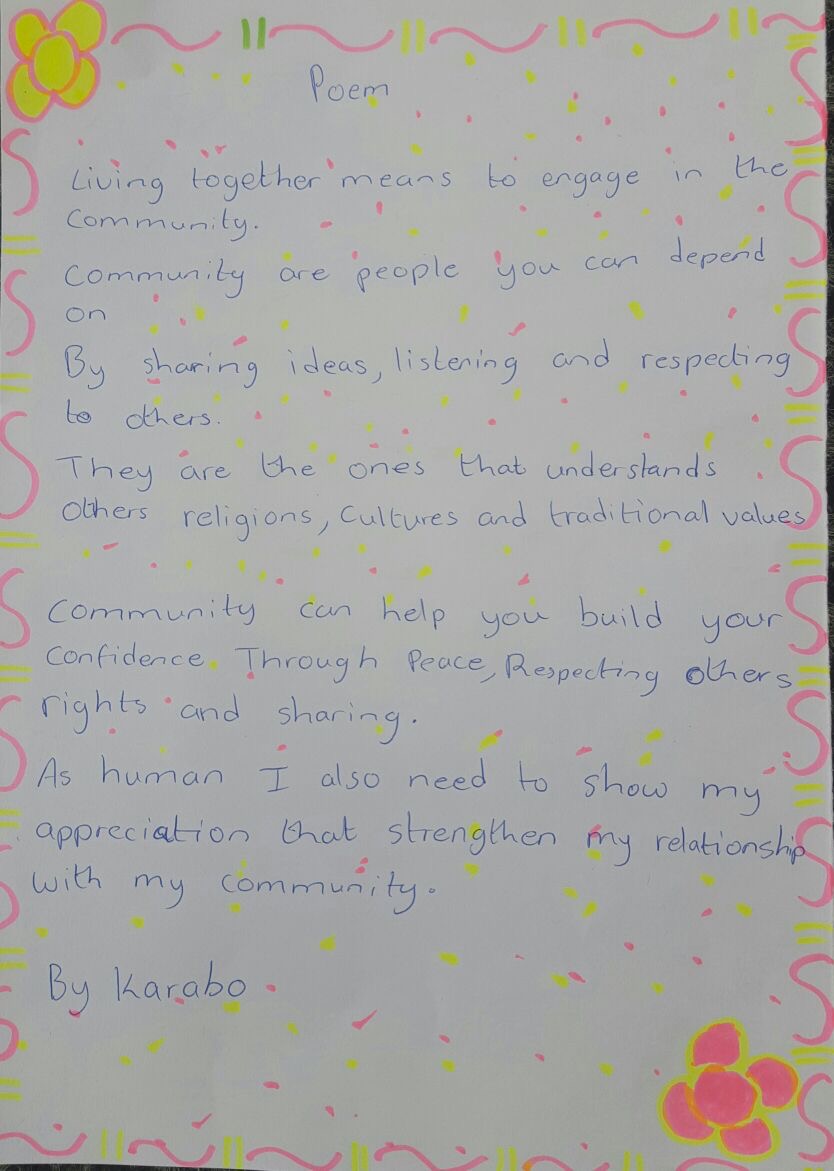 Poem
Living together means to engage in the
Community.
Community are people you can depend
on
By sharing ideas, listening and respecting
to others.
They are the ones that understands
Others religions, Cultures and traditional values
Community can help you build your
Confidence. Through Peace, Respecting others
rights and sharing.
As human I also need to show my
appreciation that strengthen my relationship
with my community.
By Karabo